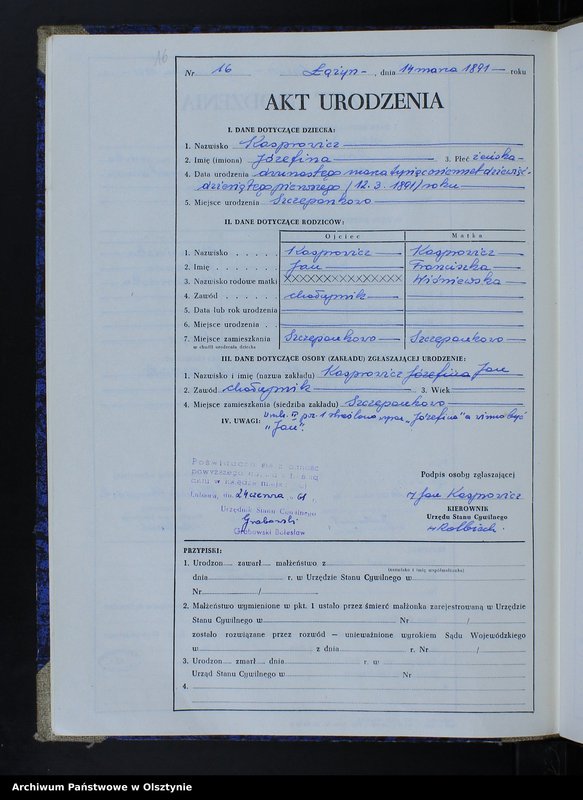 16
Nr 16 Łążyn - , dnia 14 marca 1891 — roku
AKT URODZENIA
I. DANE DOTYCZĄCE DZIECKA:
1. Nazwisko Kasprowicz
2. Imię (imiona) Józefina 3. Płeć żeńska -
4. Data urodzenia dwunastego marca tysiąc osiemset dziewięć-
dziesiątego pierwszego (12. 3. 1891) roku
5. Miejsce urodzenia Szczepankowo
II. DANE DOTYCZĄCE RODZICÓW:
Ojciec Matka
1. Nazwisko Kasprowicz Kasprowicz
2. Imię Jan Franciszka
3. Nazwisko rodowe matki XXXXXXXXXXXXXX Wiśniewska
4. Zawód chałupnik
5. Data lub rok urodzenia
6. Miejsce urodzenia
7. Miejsce zamieszkania Szczepankowo Szczepankowo
w chwili urodzenia dziecka
III. DANE DOTYCZĄCE OSOBY (ZAKŁADU) ZGŁASZAJĄCEJ URODZENIE:
1. Nazwisko i imię (nazwa zakładu) Kasprowicz Józefina Jan
2. Zawód chałupnik 3. Wiek
4. Miejsce zamieszkania (siedziba zakładu) Szczepankowo
IV. UWAGI: W rub. p. 1 skreślono wyraz „Józefina" a winno być
„Jan".
Poświadcza się zgodność
powyższego
Lubawa, dn. 24 czerwca 61 r.
Urzędnik Stanu Cywilnego
Grabowski
Grabowski Bolesław
Podpis osoby zgłaszającej
Jan Kasprowicz
KIEROWNIK
Urzędu Stanu Cywilnego
PRZYPISKI:
1. Urodzon zawarł małżeństwo z
(nazwisko i imię współmałżonka)
dnia r. w Urzędzie Stanu Cywilnego w
Nr /
2. Małżeństwo wymienione w pkt. 1 ustało przez śmierć małżonka zarejestrowaną w Urzędzie
Stanu Cywilnego w Nr /
zostało rozwiązane przez rozwód — unieważnione wyrokiem Sądu Wojewódzkiego
w z dnia r. Nr /
3. Urodzon zmarł dnia r. w
Urząd Stanu Cywilnego w Nr
4.
Archiwum Państwowe w Olsztynie